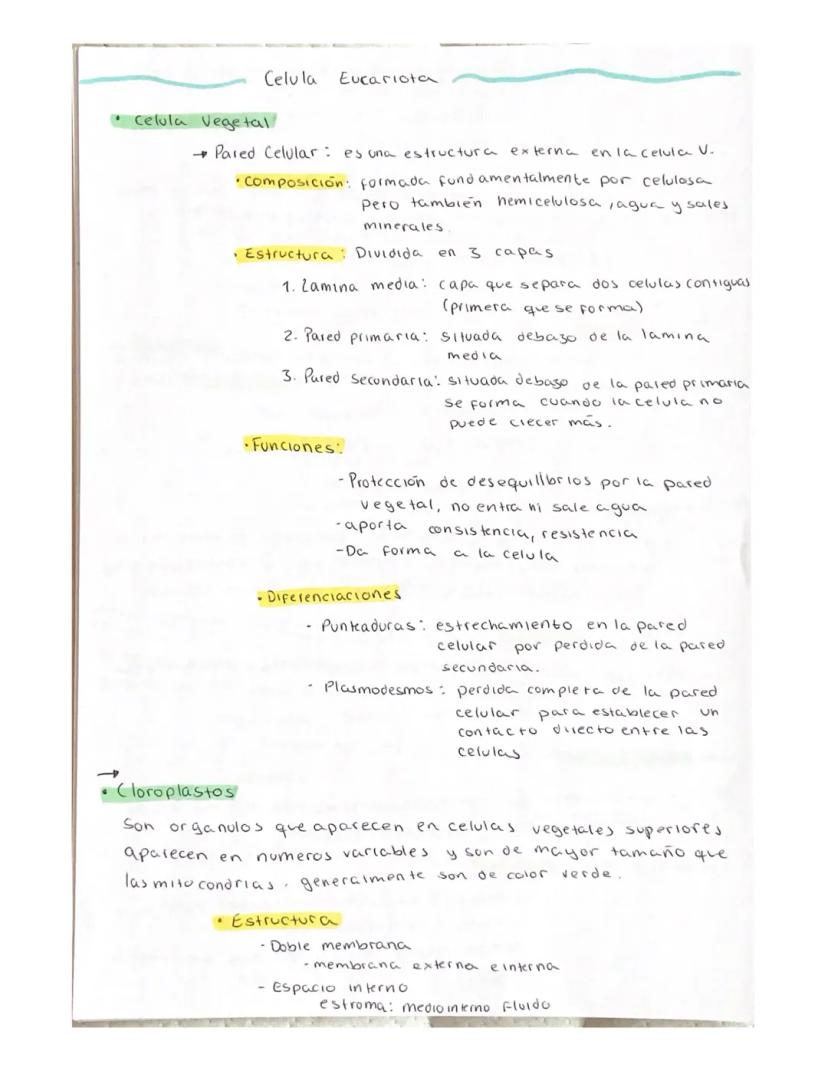 Celula Eucariota
• Celula Vegetal
→ Pared Celular: es una estructura externa en la celula V.
• Composición: formada fundamentalmente por celulosa
pero también hemicelulosa, agua y sales
minerales.
• Estructura: Dividida en 3 capas
1. Lamina media: capa que separa dos celulas contiguas
(primera que se forma)
2. Pared primaria: situada debazo de la lamina
media
3. Pared Secundaria: situada debaso de la pared primaria
se forma cuando la celula no
puede crecer más.
• Funciones:
- Protección de desequilibrios por la pared
vegetal, no entra ni sale agua
- aporta consistencia, resistencia
- Da forma a la celula
• Diferenciaciones
- Punteaduras: estrechamiento en la pared
celular por perdida de la pared
secundaria.
- Plasmodesmos: perdida completa de la pared
celular para establecer un
contacto directo entre las
celulas
→
• Cloroplastos
Son organulos que aparecen en celulas vegetales superiores
aparecen en numeros variables y son de mayor tamaño que
las mitocondrias, generalmente son de color verde.
• Estructura
- Doble membrana
- membrana externa e interna
- Espacio interno
estroma: medio interno fluido